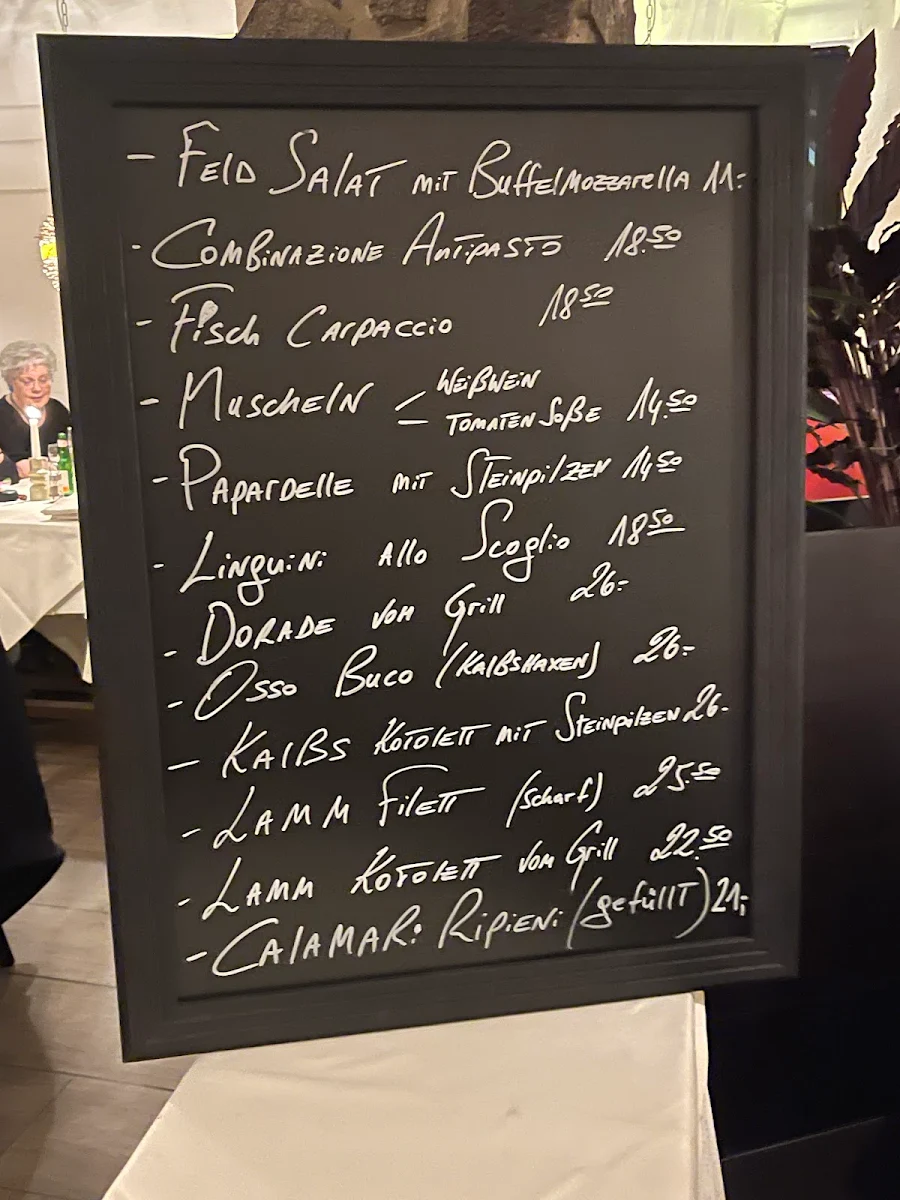 - Feld Salat mit Buffelmozzarella 11.-
- Combinazione Antipasto 18.50
- Fisch Carpaccio 18.50
- Muscheln - Weißwein
- Tomaten Soße 14.50
- Papardelle mit Steinpilzen 14.50
- Linguini allo Scoglio 18.50
- Dorade vom Grill 26.-
- Osso Buco (Kalbshaxen) 26.-
- Kalbs Kotolett mit Steinpilzen 26.-
- Lamm Filett (scharf) 25.50
- Lamm Kotolett vom Grill 22.50
- Calamari Ripieni (gefüllt) 21.-